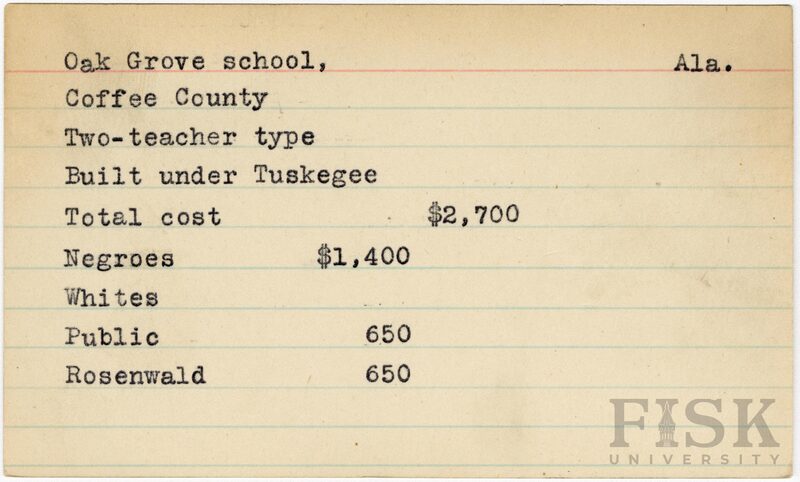 Oak Grove school, Ala.
Coffee County
Two-teacher type
Built under Tuskegee
Total cost $2,700
Negroes $1,400
Whites
Public 650
Rosenwald 650
FISK
UNIVERSITY